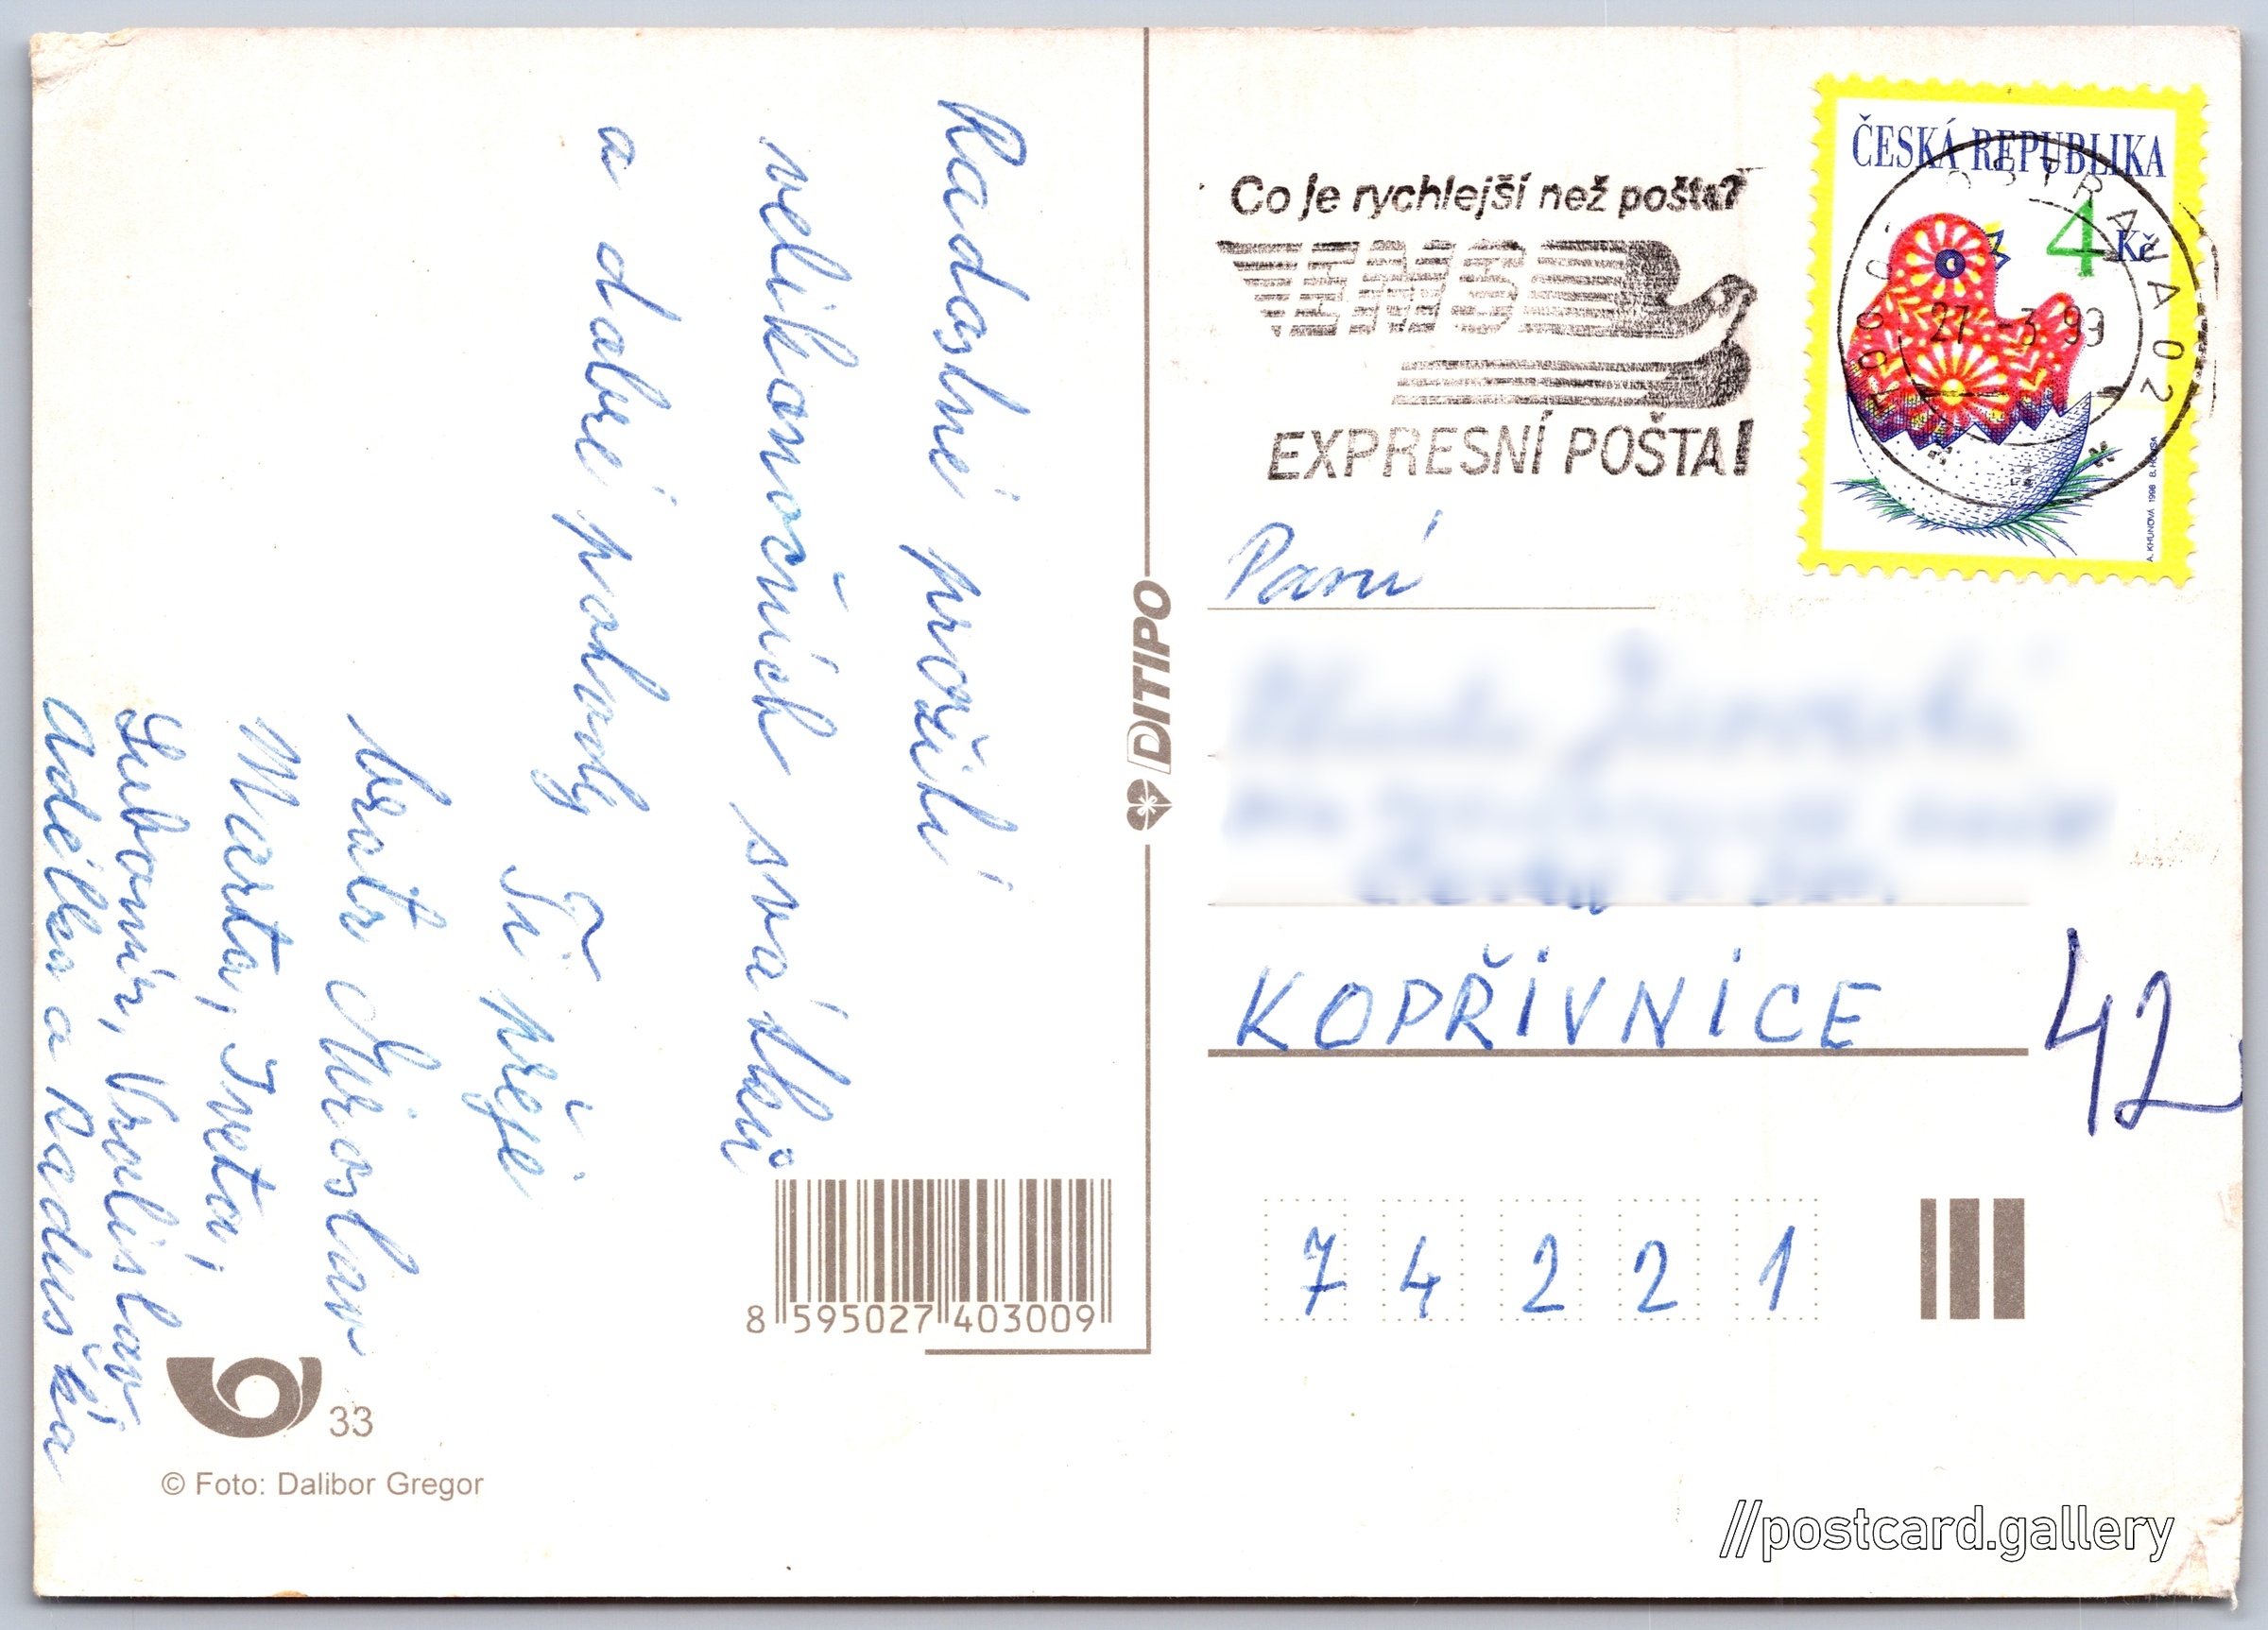 Radostné prožití
velikonočních svátků
a dobré pohody
Ti přeje
bratr Miroslav
Marta, Iveta,
Lubomír, Vratislav
Adélka a Raduška
33
© Foto: Dalibor Gregor
8 595027 403009
DITIPO
Co je rychlejší než pošta?
EMS
EXPRESNÍ POŠTA!
ČESKÁ REPUBLIKA
4 Kč
OSTRAVA 02
27 -3 99
A. KHUNOVÁ 1998 B. HOUSA
Paní
KOPŘIVNICE
42
7 4 2 2 1
//postcard.gallery